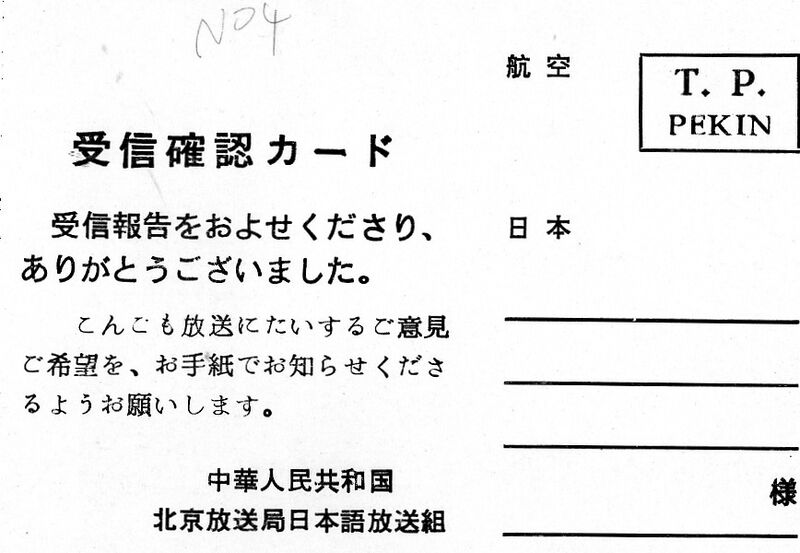 NO4
受信確認カード
受信報告をおよせくださり、
ありがとうございました。
こんごも放送にたいするご意見
ご希望を、お手紙でお知らせくださ
るようお願いします。
中華人民共和国
北京放送局日本語放送組
航空
T. P.
PEKIN
日本
様